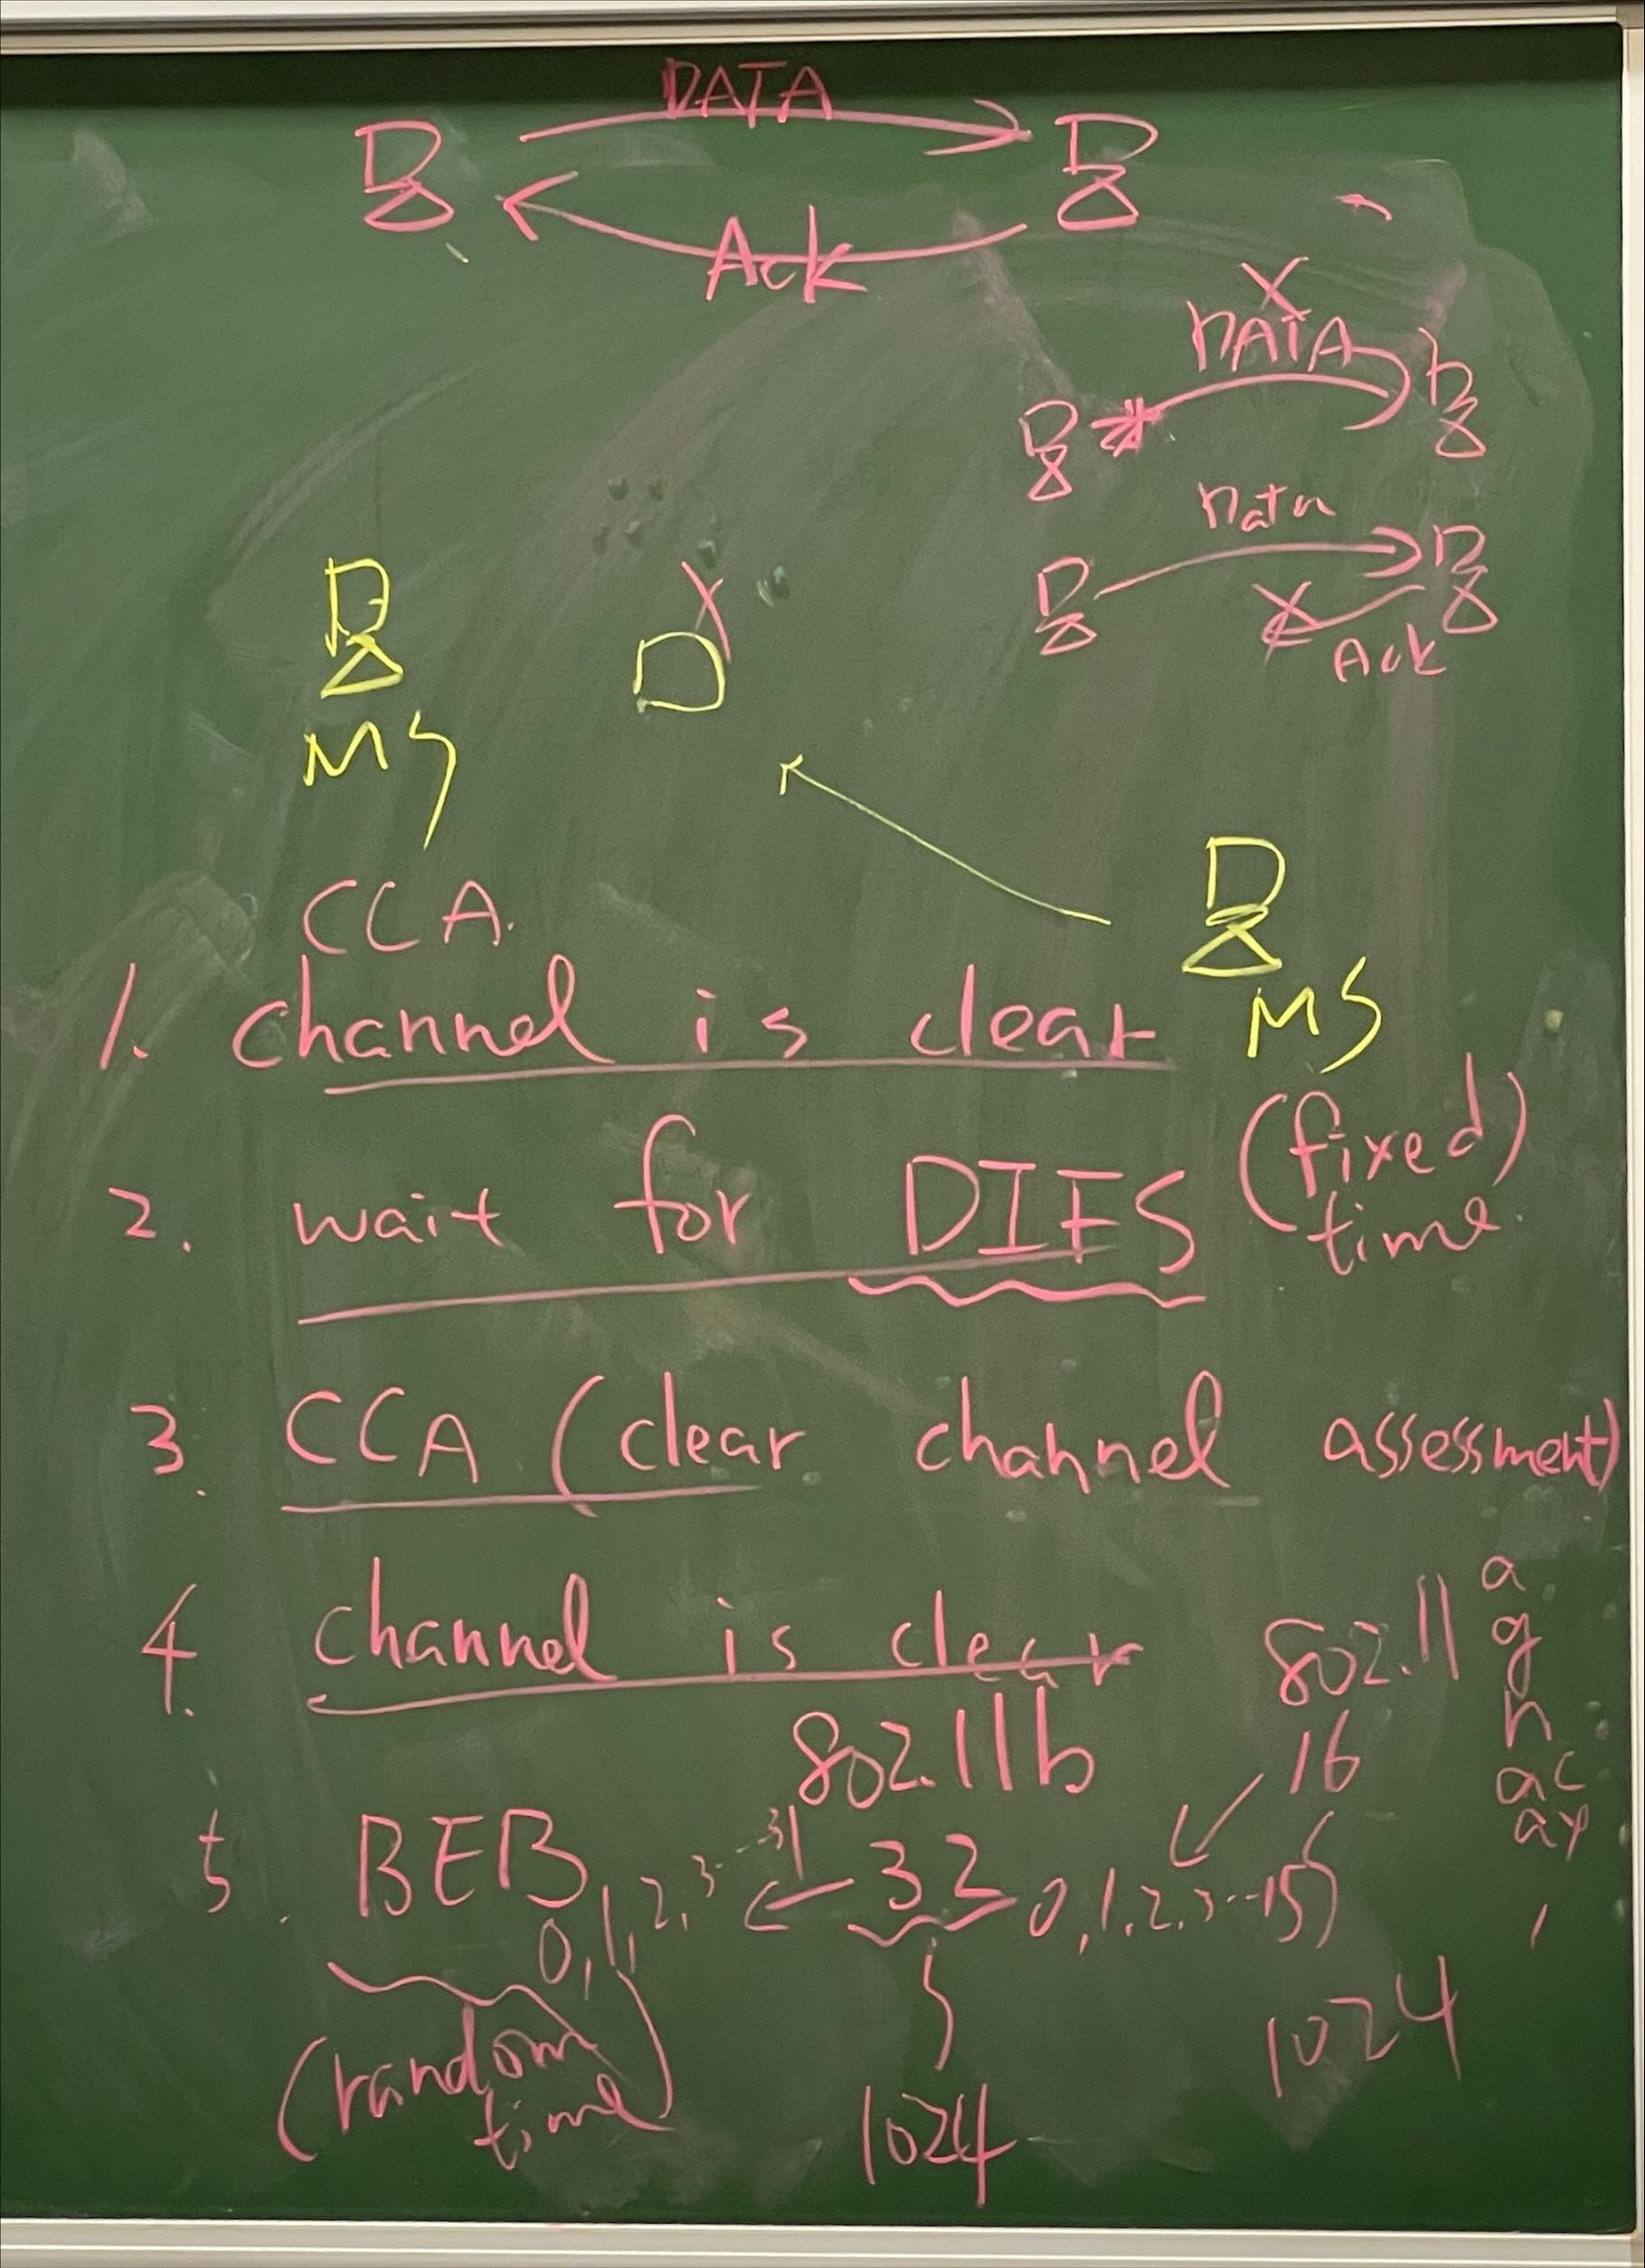 DATA
Ack
DATA
Data
Ack
MS
MS
CCA.
1. channel is clear
2. wait for DIFS (fixed) time.
3. CCA (clear channel assessment)
4. channel is clear
802.11 a
g
n
ac
802.11b
16
5. BEB
0, 1, 2, 3--31
32
0, 1, 2, 3--15
(random time)
1024
1024